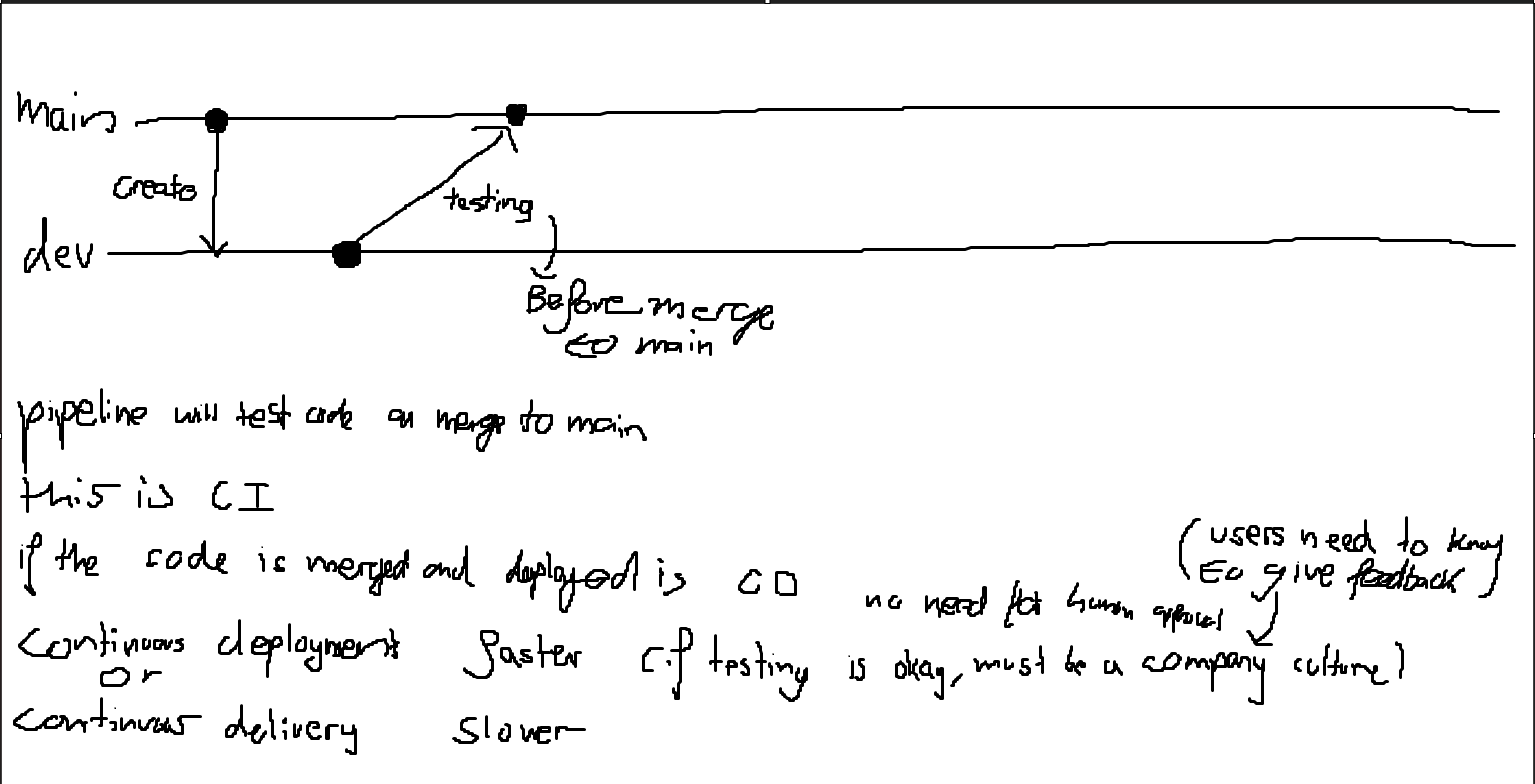 main
create
testing
dev
Before merge
to main
pipeline will test code on merge to main
this is CI
if the code is merged and deployed is CD
(users need to know
to give feedback)
no need for human approval
continuous deployment faster (if testing is okay, must be a company culture)
or
continuous delivery slower